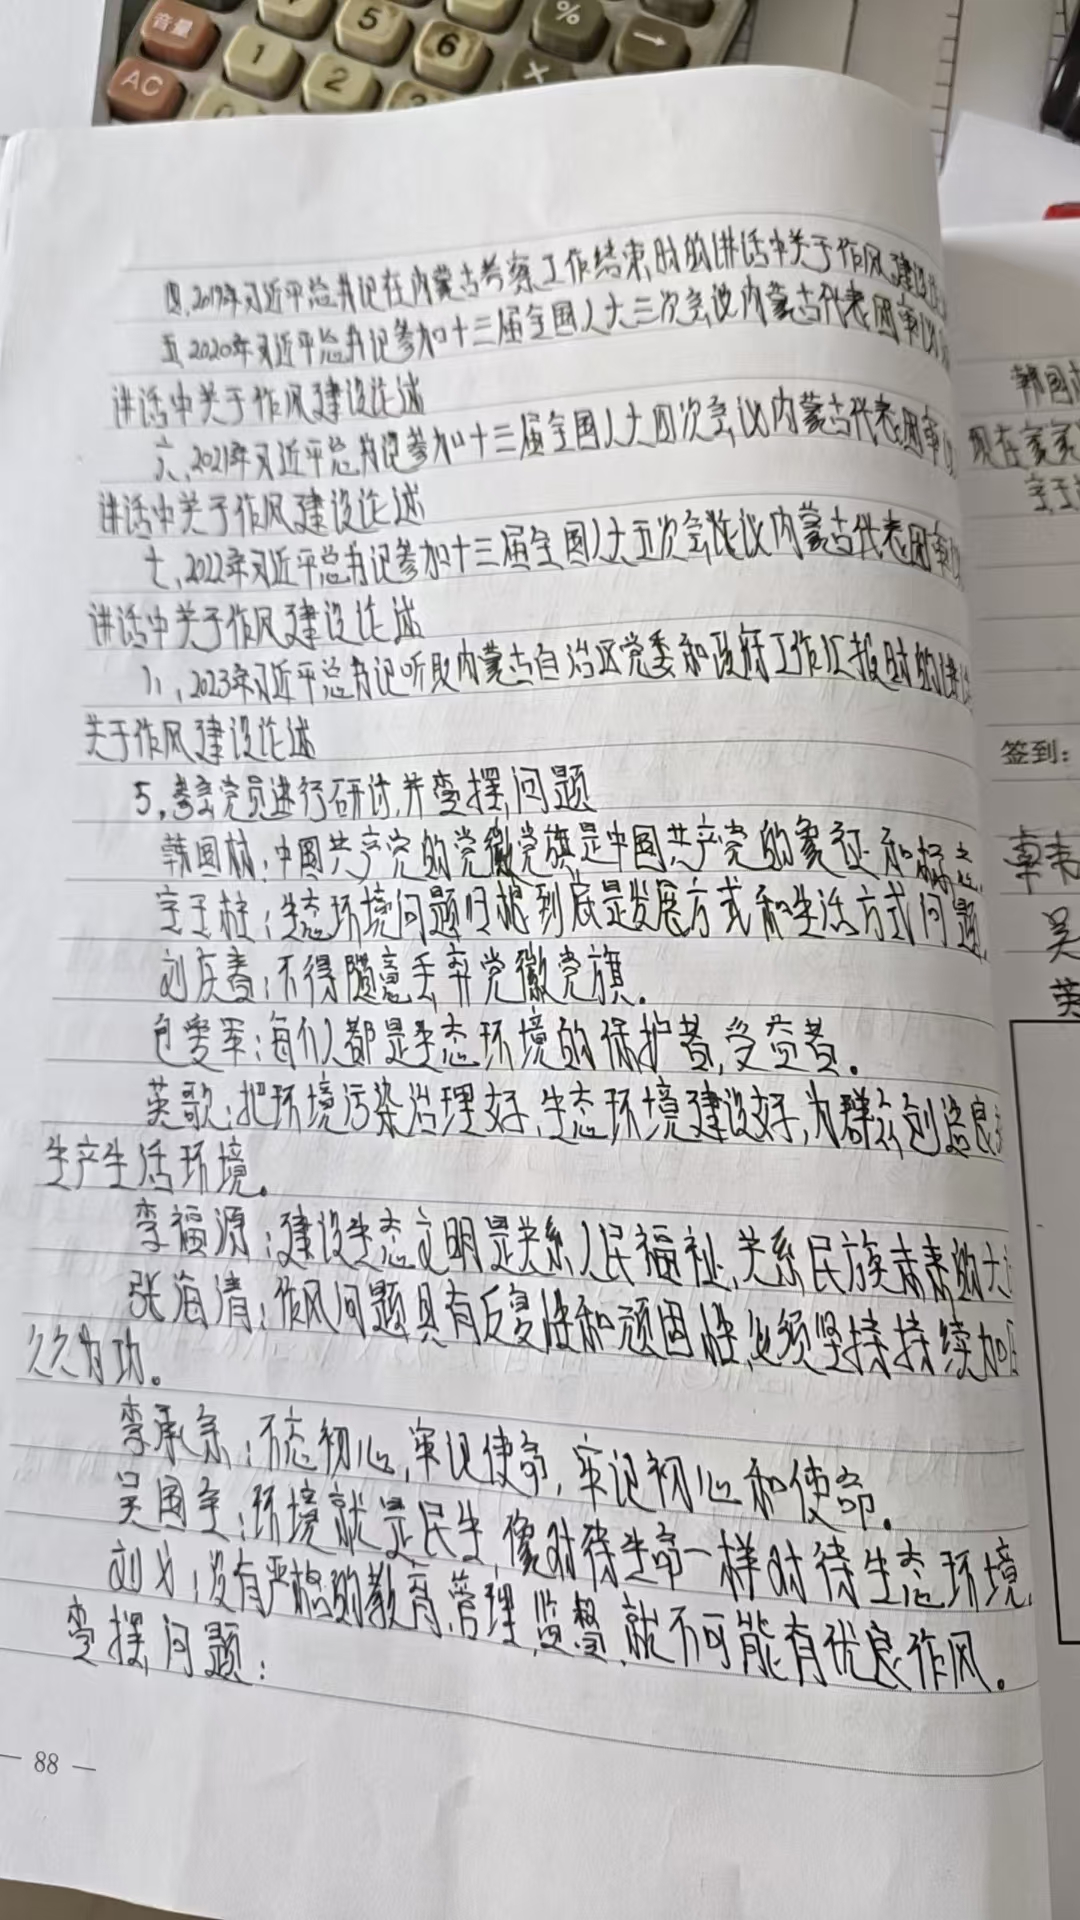 音量
5
%
→
1
6
AC
2
×
四、2019年习近平总书记在内蒙古考察工作结束时的讲话中关于作风建设
五、2020年习近平总书记参加十三届全国人大三次会议内蒙古代表团审议
讲话中关于作风建设论述
六、2021年习近平总书记参加十三届全国人大四次会议内蒙古代表团审
讲话中关于作风建设论述
七、2022年习近平总书记参加十三届全国人大五次会议议内蒙古代表团审
讲话中关于作风建设论述
八、2023年习近平总书记听取内蒙古自治区党委和政府工作汇报时的讲
关于作风建设论述
5、党员进行研讨,并查摆问题
韩国林:中国共产党的党徽党旗是中国共产党的象征和标志
宝玉柱:生态环境问题归根到底是发展方式和生活方式问题
刘庆春:不得随意丢弃党徽党旗.
包爱军:每个人都是生态环境的保护者,受益者.
英歌:把环境污染治理好,生态环境建设好,为群众创造良
生产生活环境。
李福源:建设生态文明是关系人民福祉,关系民族未来的大
张海清:作风问题具有反复性和顽固性,必须坚持持续加
久久为功。
李承余:不忘初心,牢记使命,牢记初心和使命.
吴国全:环境就是民生,像对待生命一样对待生态环境.
刘义:没有严格的教育,管理,监督,就不可能有优良作风。
查摆问题:
— 88 —
韩国
现在
宝玉
签到:
韩
吴
英